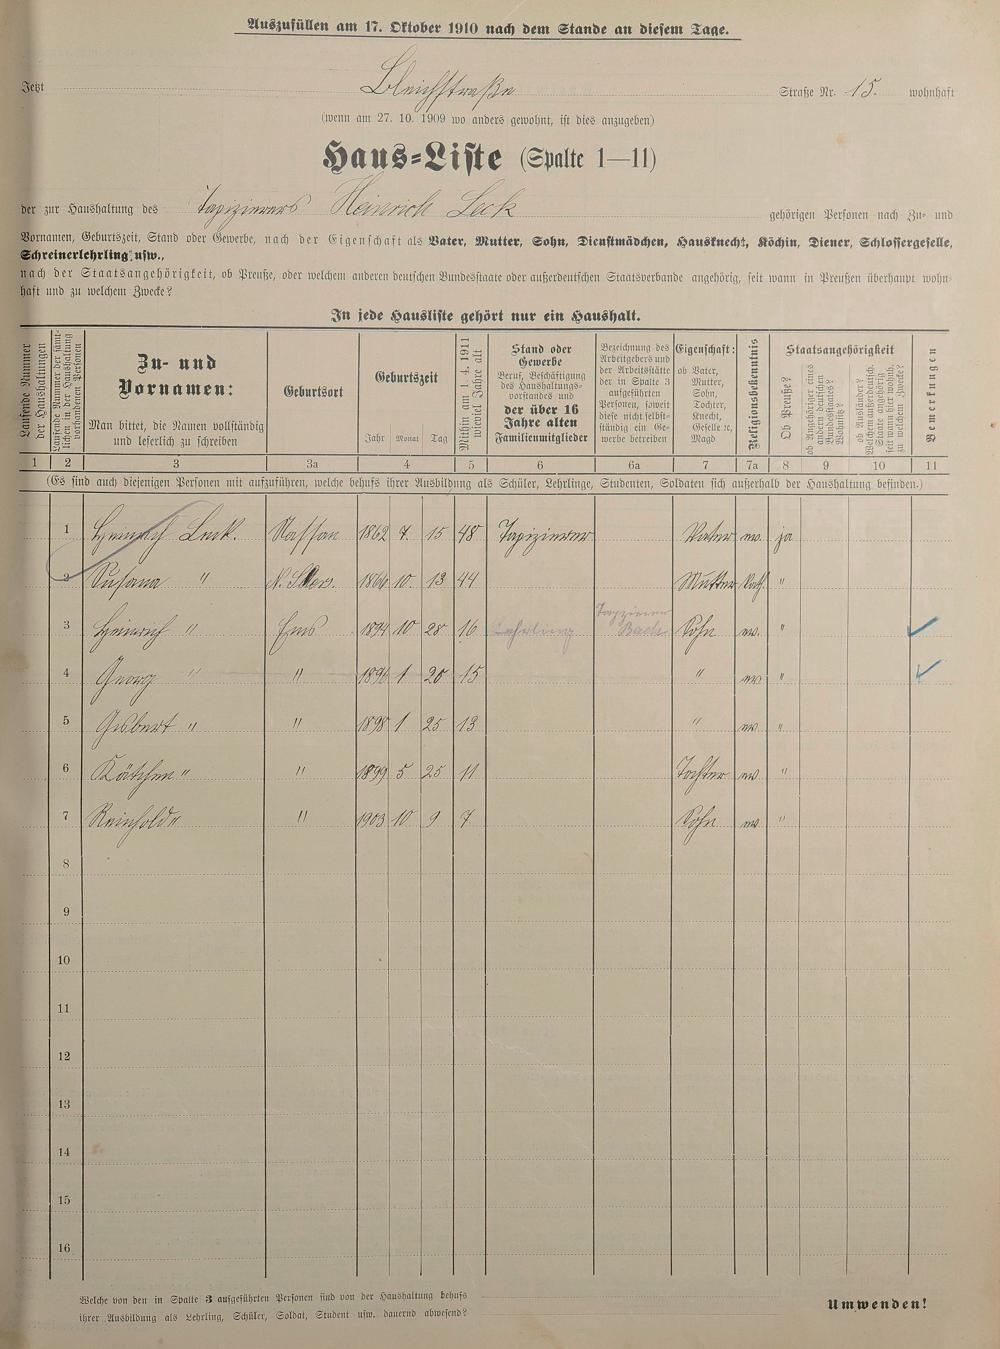 Auszufüllen am 17. Oktober 1910 nach dem Stande an diesem Tage.
Jetzt Bleichstraße Straße Nr. 15. wohnhaft
(wenn am 27. 10. 1909 wo anders gewohnt, ist dies anzugeben)
Haus-Liste (Spalte 1—11)
der zur Haushaltung des Tapezierers Heinrich Leck gehörigen Personen nach Zu- und
Vornamen, Geburtszeit, Stand oder Gewerbe, nach der Eigenschaft als Vater, Mutter, Sohn, Dienstmädchen, Hausknecht, Köchin, Diener, Schlossergeselle,
Schreinerlehrling usw.,
nach der Staatsangehörigkeit, ob Preuße, oder welchem anderen deutschen Bundesstaate oder außerdeutschen Staatsverbande angehörig, seit wann in Preußen überhaupt wohn-
haft und zu welchem Zwecke?
In jede Hausliste gehört nur ein Haushalt.
Laufende Nummer der Haushaltungen
Laufende Nummer der sämt-lichen in der Haushaltung vorhandenen Personen
Zu- und
Vornamen:
Man bittet, die Namen vollständig
und leserlich zu schreiben
Geburtsort
Geburtszeit
Jahr Monat Tag
Mithin am 1. 4. 1911 wieviel Jahre alt
Stand oder
Gewerbe
Beruf, Beschäftigung
des Haushaltungs-
vorstandes und
der über 16
Jahre alten
Familienmitglieder
Bezeichnung des
Arbeitgebers und
der Arbeitsstätte
der in Spalte 3
aufgeführten
Personen, soweit
diese nicht selbst-
ständig ein Ge-
werbe betreiben
Eigenschaft:
ob Vater,
Mutter,
Sohn,
Tochter,
Knecht,
Geselle ꝛc,
Magd
Religionsbekenntnis
Staatsangehörigkeit
Ob Preuße?
ob Angehöriger eines andern deutschen Bundesstaates? Welchen?
ob Ausländer? Welchem außerdeutsch. Staate angehörig, seit wann hier wohnh. zu welchem Zwecke?
Bemerkungen
1 2 3 3a 4 5 6 6a 7 7a 8 9 10 11
(Es sind auch diejenigen Personen mit aufzuführen, welche behufs ihrer Ausbildung als Schüler, Lehrlinge, Studenten, Soldaten sich außerhalb der Haushaltung befinden.)
1 Heinrich Leck. Nassau 1862 7. 15 48 Tapezierer Vater ev. ja
2 Susana " 1866 10 13 44 Mutter Kath. "
3 Heinrich " Ems 1894 10 28 16 Lehrling Tapezierer Bach Sohn ev. "
4 Georg " " 1896 1 20 15 " ev "
5 Gisbert " " 1898 1 25 13 " ev "
6 Kätchen " " 1899 5 25 11 Tochter ev "
7 Reinhold " " 1903 10 9 7 Sohn ev "
8
9
10
11
12
13
14
15
16
Welche von den in Spalte 3 aufgeführten Personen sind von der Haushaltung behufs
ihrer Ausbildung als Lehrling, Schüler, Soldat, Student usw. dauernd abwesend?
Umwenden!